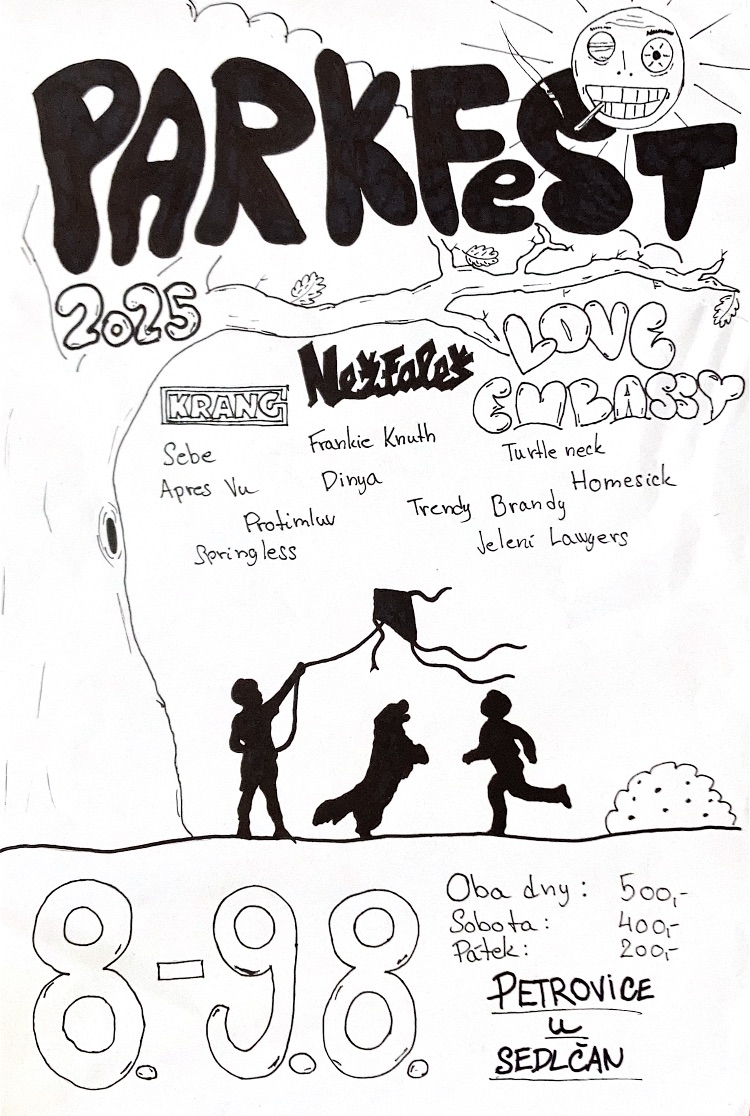 PARKFeST
2025
LOVE
EMBASSY
KRANG
Nežfaleš
Sebe
Frankie Knuth
Turtle neck
Apres Vu
Dinya
Homesick
Protimluv
Trendy Brandy
Springless
Jelení Lawyers
8.-9.8.
Oba dny: 500,-
Sobota: 400,-
Pátek: 200,-
PETROVICE
u
SEDLČAN